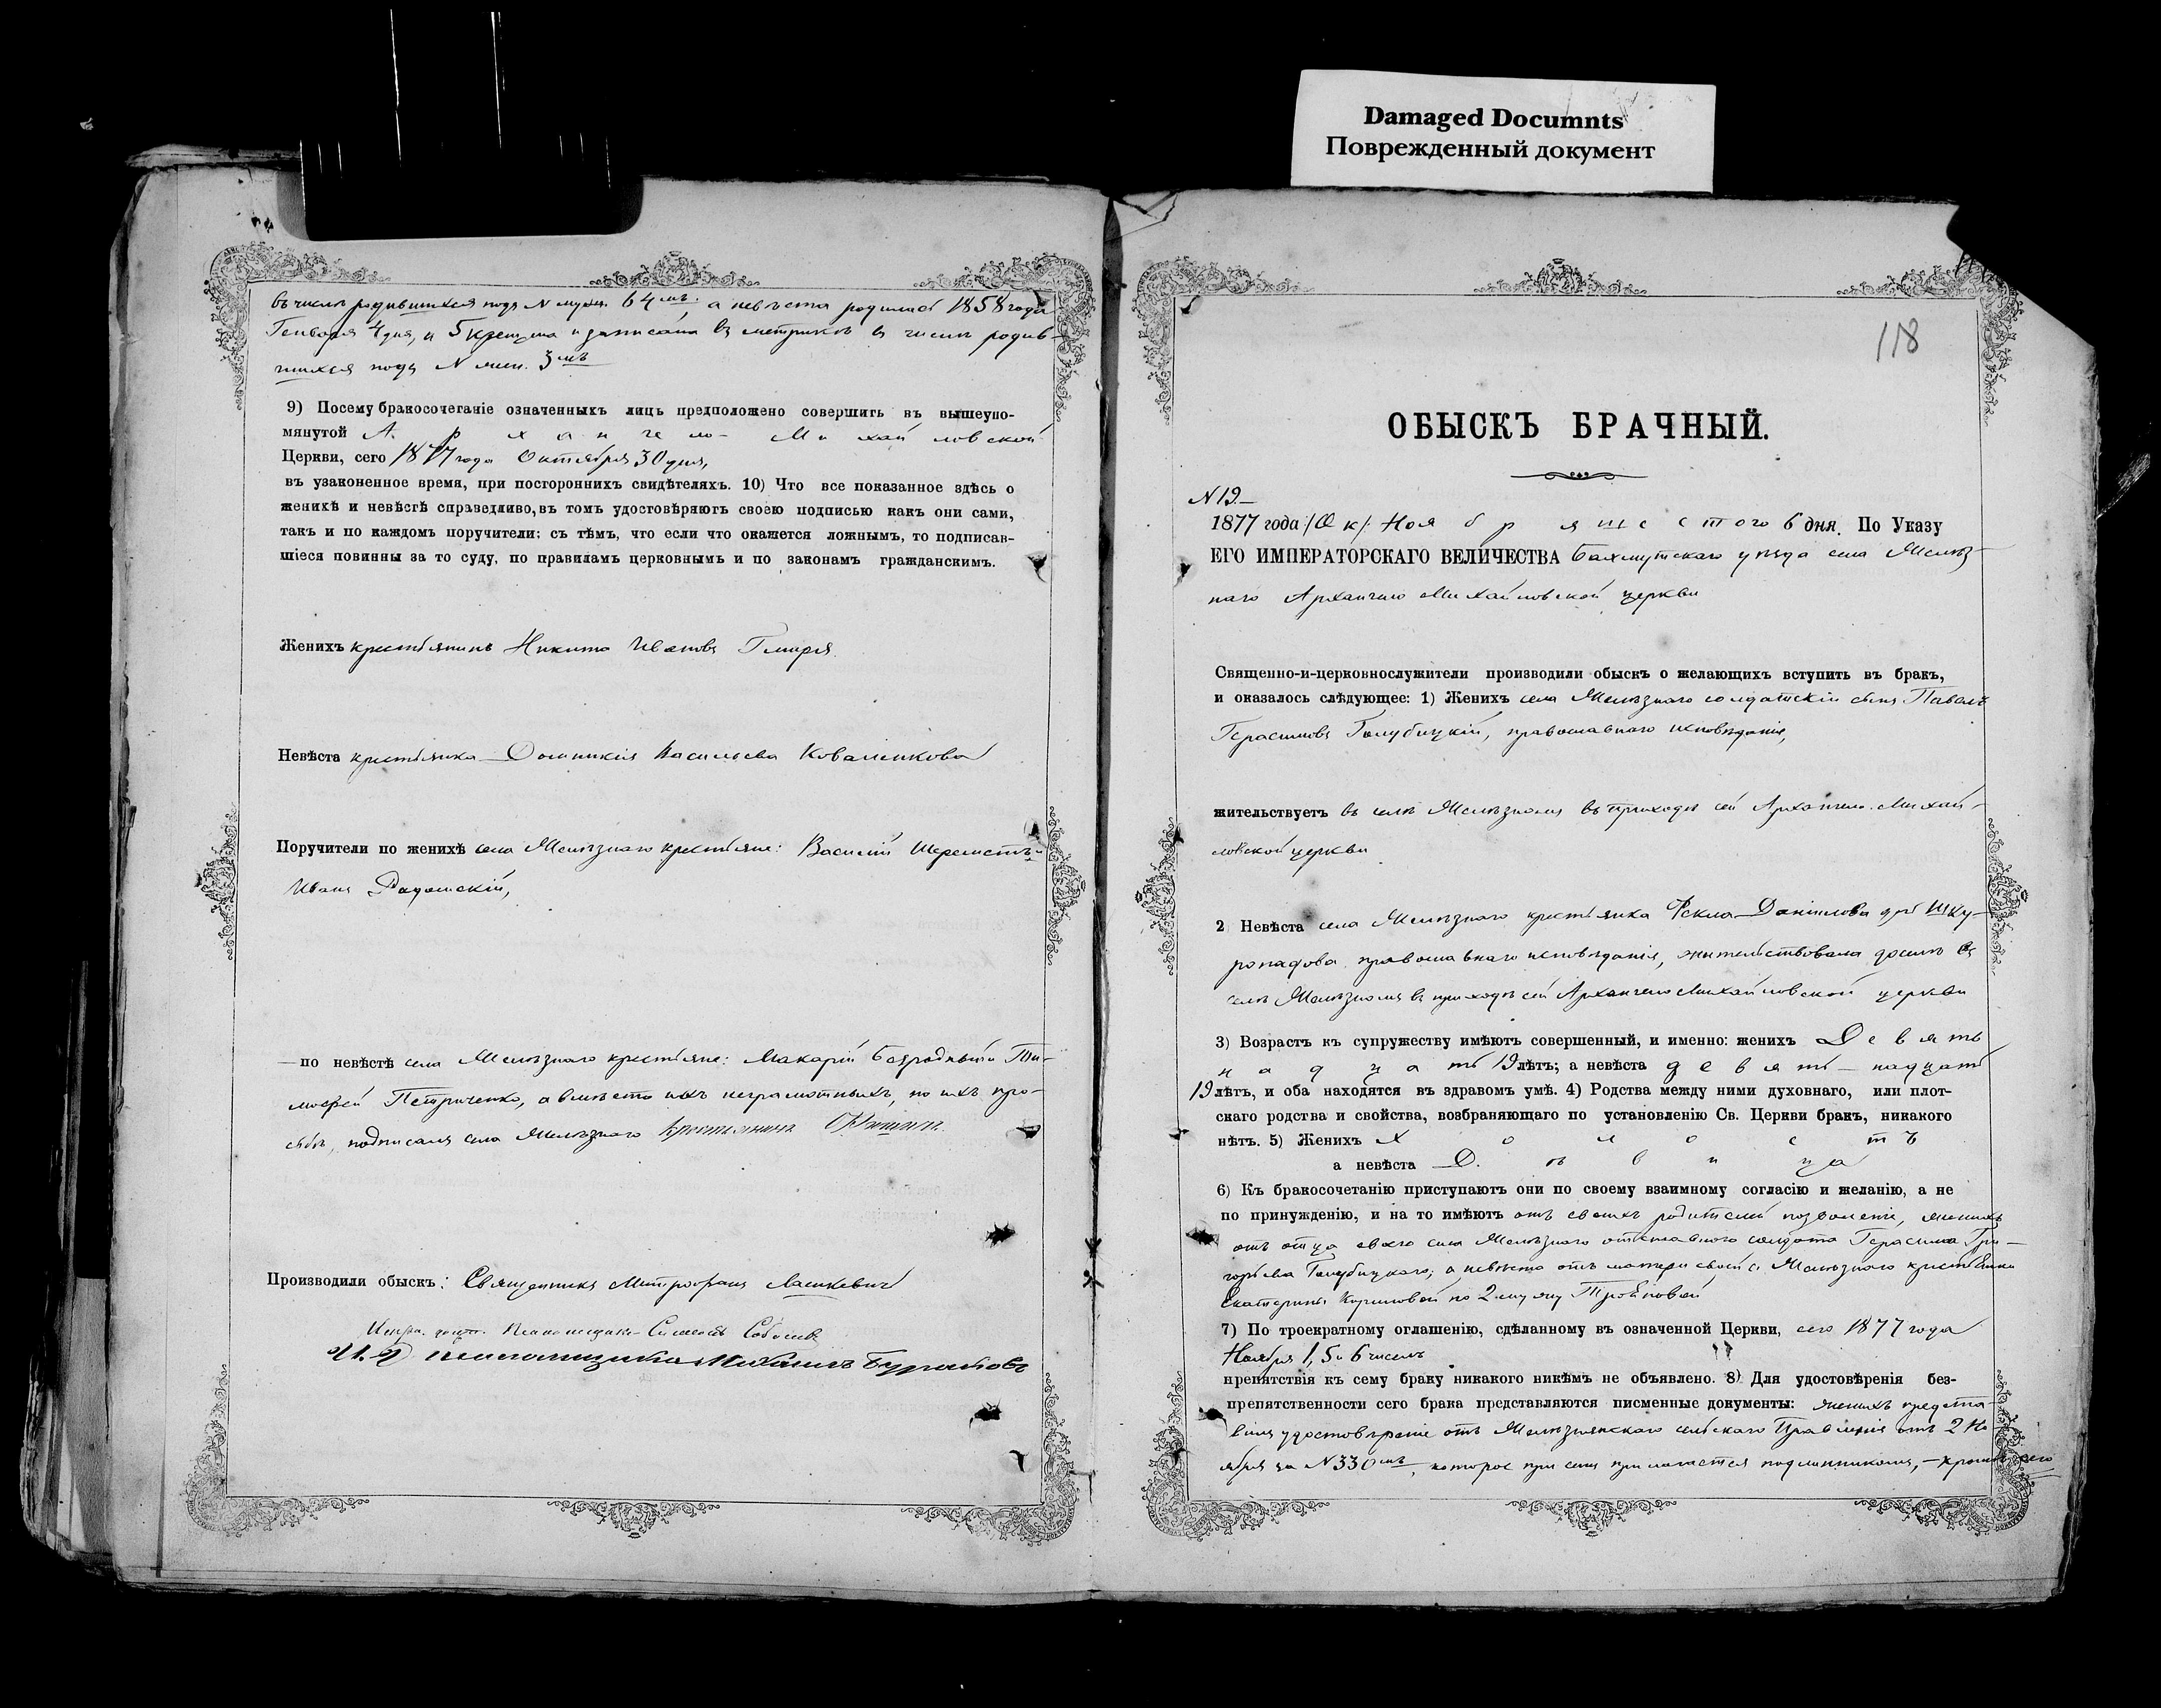 Damaged Documnts
Поврежденный документ
въ числѣ родившихся подъ N мужск. 64мъ. а невѣста родилась 1858 года
Генваря 4 дня, и 5 крещена и записана въ метрикѣ въ числѣ родив-
шихся подъ N жен. 3мъ
9) Посему бракосочетаніе означенныхъ лицъ предположено совершить въ вышеупо-
мянутой Архангело-Михайловской
Церкви, сего 1877 года Октября 30 дня,
въ узаконенное время, при постороннихъ свидѣтеляхъ. 10) Что все показанное здѣсь о
женихѣ и невѣстѣ справедливо, въ томъ удостовѣряютъ своею подписью какъ они сами,
такъ и по каждомъ поручители: съ тѣмъ, что если что окажется ложнымъ, то подписав-
шіеся повинны за то суду, по правиламъ церковнымъ и по законамъ гражданскимъ.
Женихъ крестьянинъ Никита Ивановъ Гмиря
Невѣста крестьянка Домникія Васильева Коваленкова
Поручители по женихѣ села Желѣзнаго крестьяне: Василій Шереметъ и
Иванъ Радомскій,
— по невѣстѣ села Желѣзнаго крестьяне: Макарій Безродный и Ти-
мофей Петриченко, а вмѣсто ихъ неграмотныхъ, по ихъ про-
сьбѣ, подписался села Желѣзнаго крестьянинъ
Производили обыскъ: Священникъ Митрофанъ Лашкевичъ
Псаломщикъ Соболевъ
И. Д. псаломщика Михаилъ
118
ОБЫСКЪ БРАЧНЫЙ.
N 19.—
1877 года /Ок/ Ноября шестого 6 дня. По Указу
ЕГО ИМПЕРАТОРСКАГО ВЕЛИЧЕСТВА Бахмутскаго уѣзда села Желѣз-
наго Архангело Михайловской церкви
Священно-и-церковнослужители производили обыскъ о желающихъ вступить въ бракъ,
и оказалось слѣдующее: 1) Женихъ села Желѣзнаго солдатскій сынъ Павелъ
Герасимовъ Голубицкій, православнаго исповѣданія,
жительствуетъ въ селѣ Желѣзномъ въ приходѣ сей Архангело-Михай-
ловской церкви
2 Невѣста села Желѣзнаго крестьянка Ѳекла Даніилова дочь Шку-
ропадова православнаго исповѣданія, жительствовала доселѣ въ
селѣ Желѣзномъ въ приходѣ сей Архангело Михайловской церкви
3) Возрастъ къ супружеству имѣютъ совершенный, и именно: женихъ Девять
надцать 19 лѣтъ; а невѣста девять-надцать
19 лѣтъ, и оба находятся въ здравомъ умѣ. 4) Родства между ними духовнаго, или плот-
скаго родства и свойства, возбраняющаго по установленію Св. Церкви бракъ, никакого
нѣтъ. 5) Женихъ Холостъ
а невѣста Дѣвица
6) Къ бракосочетанію приступаютъ они по своему взаимному согласію и желанію, а не
по принужденію, и на то имѣютъ отъ своихъ родителей позволеніе, женихъ
отъ отца своего села Желѣзнаго отставнаго солдата Герасима Гри-
горьева Голубицкаго; а невѣста отъ матери своей с. Желѣзнаго крестьянки
Екатерины Кориловой по 2 му мужу
7) По троекратному оглашенію, сдѣланному въ означенной Церкви, сего 1877 года
Ноября 1, 5 и 6 числъ
препятствія къ сему браку никакого никѣмъ не объявлено. 8) Для удостовѣренія без-
препятственности сего брака представляются писменные документы: женихъ предста-
вилъ удостовѣреніе отъ Желѣзнянскаго сельскаго Правленія отъ 2 Но
ября за N 330мъ, которое при семъ прилагается подлинникомъ, - кромѣ сего